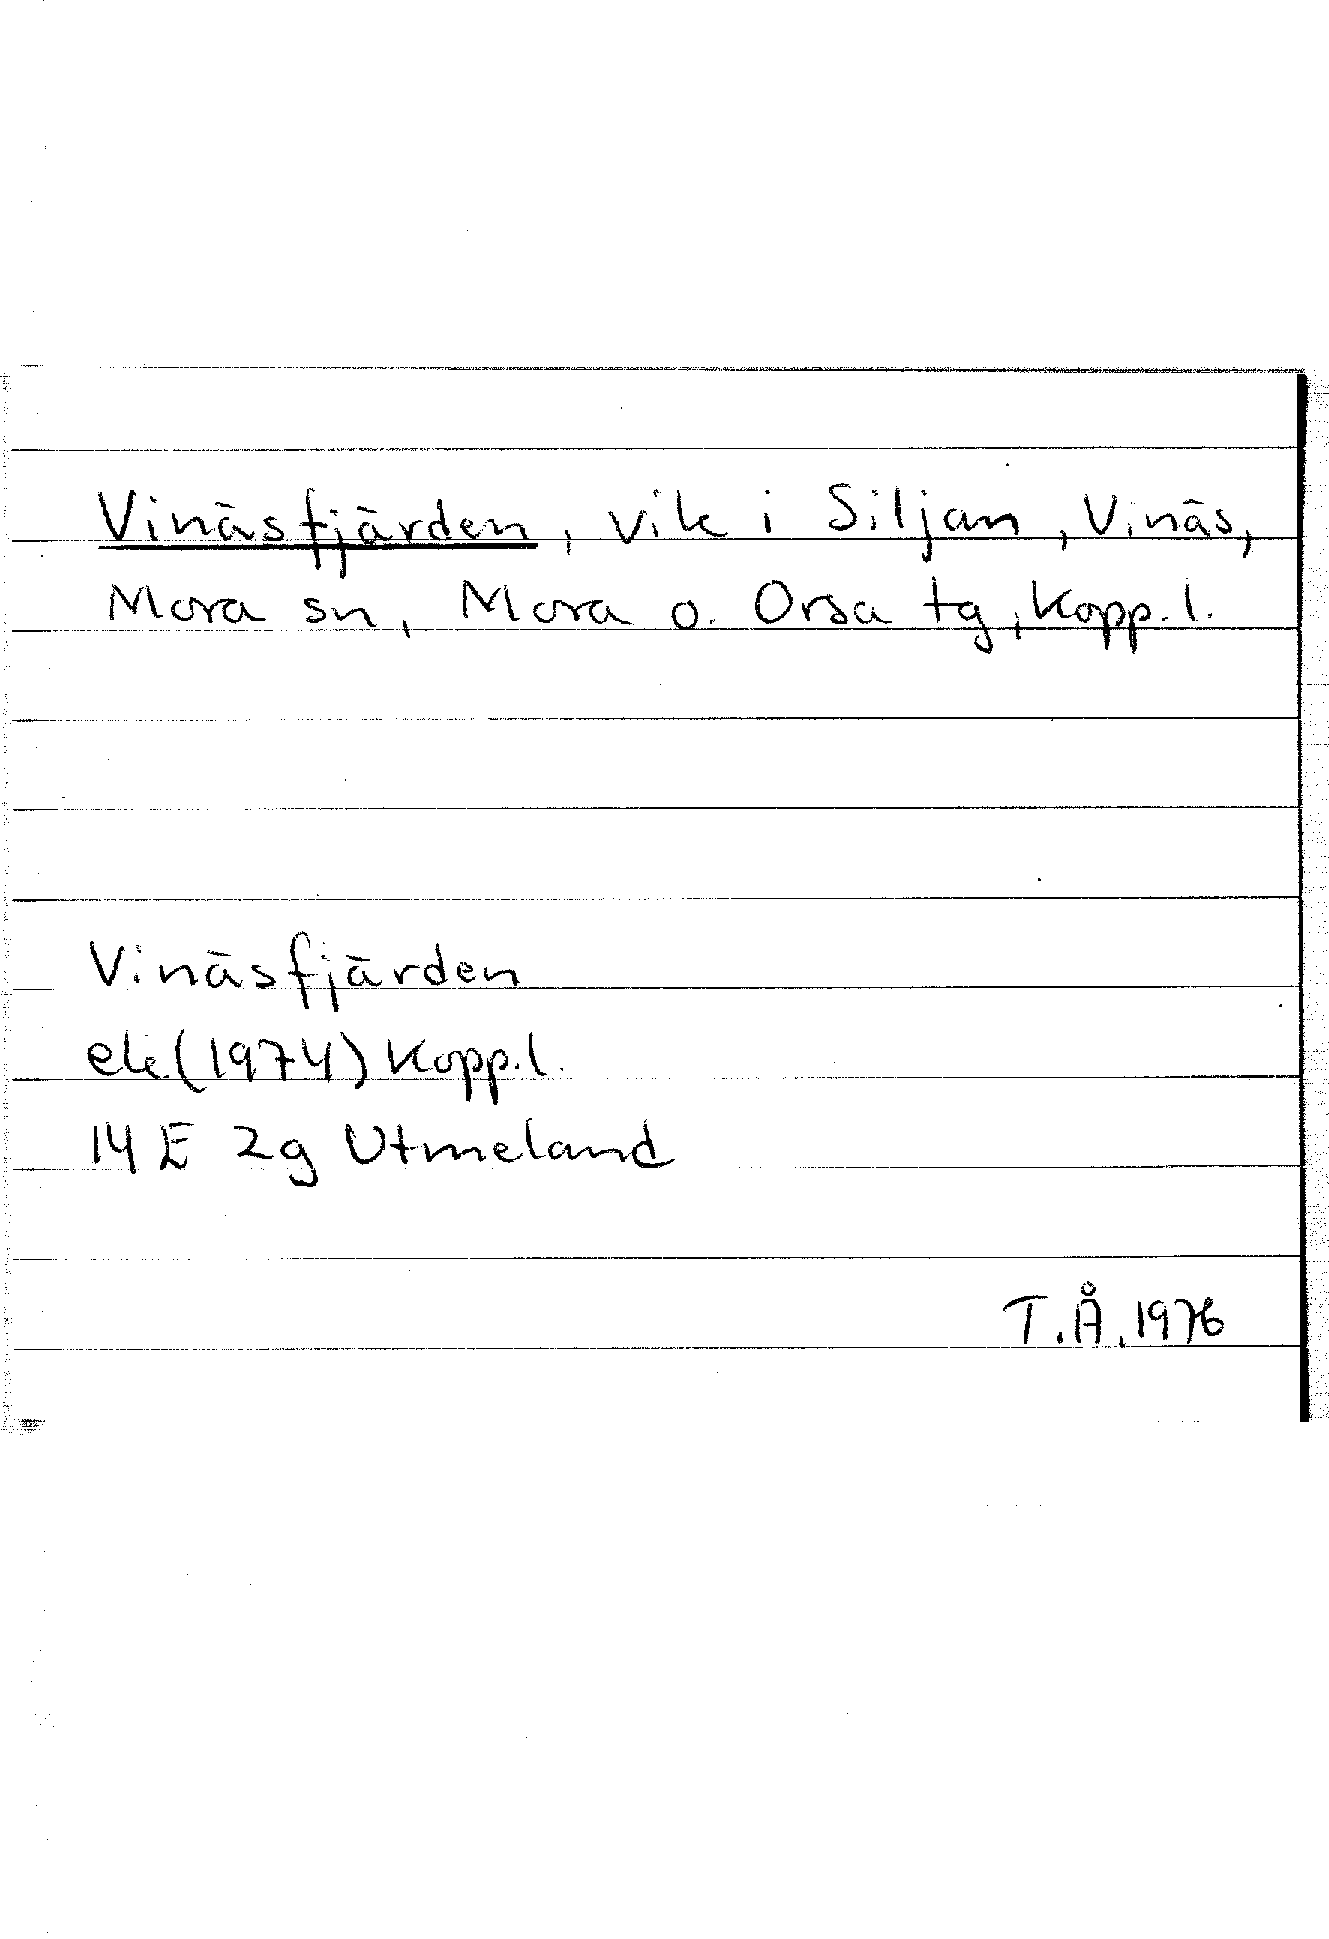 Vinäsfjärden, vik i Siljan, Vinäs,
Mora sn, Mora o. Orsa tg, Kopp. l.
Vinäsfjärden
ek. (1974) Kopp. l.
14 E 2g Utmeland
T.Å. 1976